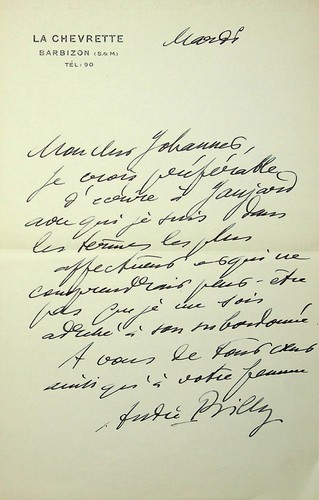 LA CHEVRETTE
BARBIZON (S.&M.)
TÉL: 90
Mardi
Mon cher Johannes,
je crois préférable
d'écrire à Jaujard
avec qui je suis dans
les termes les plus
affectueux et qui ne
comprendrait peut-être
pas que je me sois
adressé à son subordonné.
A vous de tout cœur
ainsi qu'à votre femme
André Billy